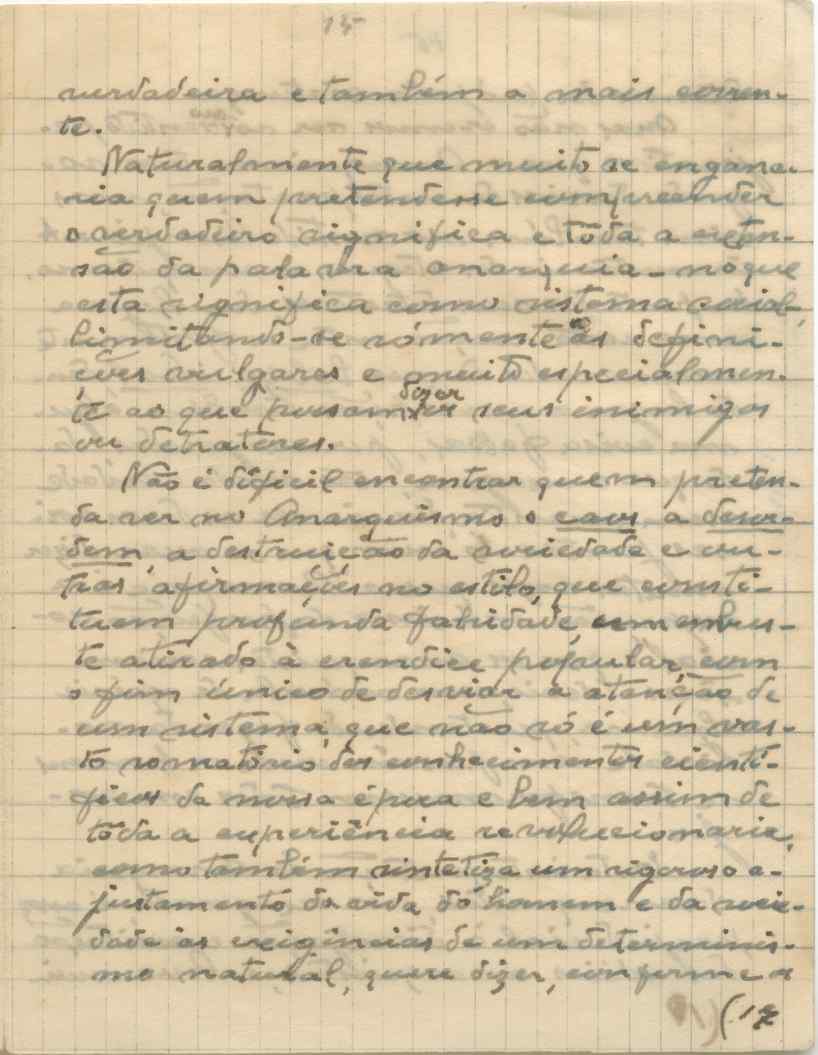 15
verdadeira e também a mais corren-
te.
Naturalmente que muito se engana-
ria quem pretendesse compreender
o verdadeiro significa e tôda a exten-
são da palavra anarquia - no que
esta significa como sistema social,
limitando-se sómente às defini-
ções vulgares e muito especialmen-
te ao que possam dizer seus inimigos
ou detratores.
Não é dificil encontrar quem preten-
da ver no Anarquismo o caos, a desor-
dem, a destruição da sociedade e ou-
tras afirmações no estilo, que consti-
tuem profunda falsidade, um embus-
te atirado à crendice popular, com
o fim único de desviar a atenção de
um sistema, que não só é um vas-
to somatório dos conhecimentos cientí-
ficos da nossa época e bem assim de
tôda a experiência revolucionaria,
como também sintetiza um rigoroso a-
justamento da vida do homem e da socie-
dade às exigências de um determinis-
mo natural, quere dizer, conforme a